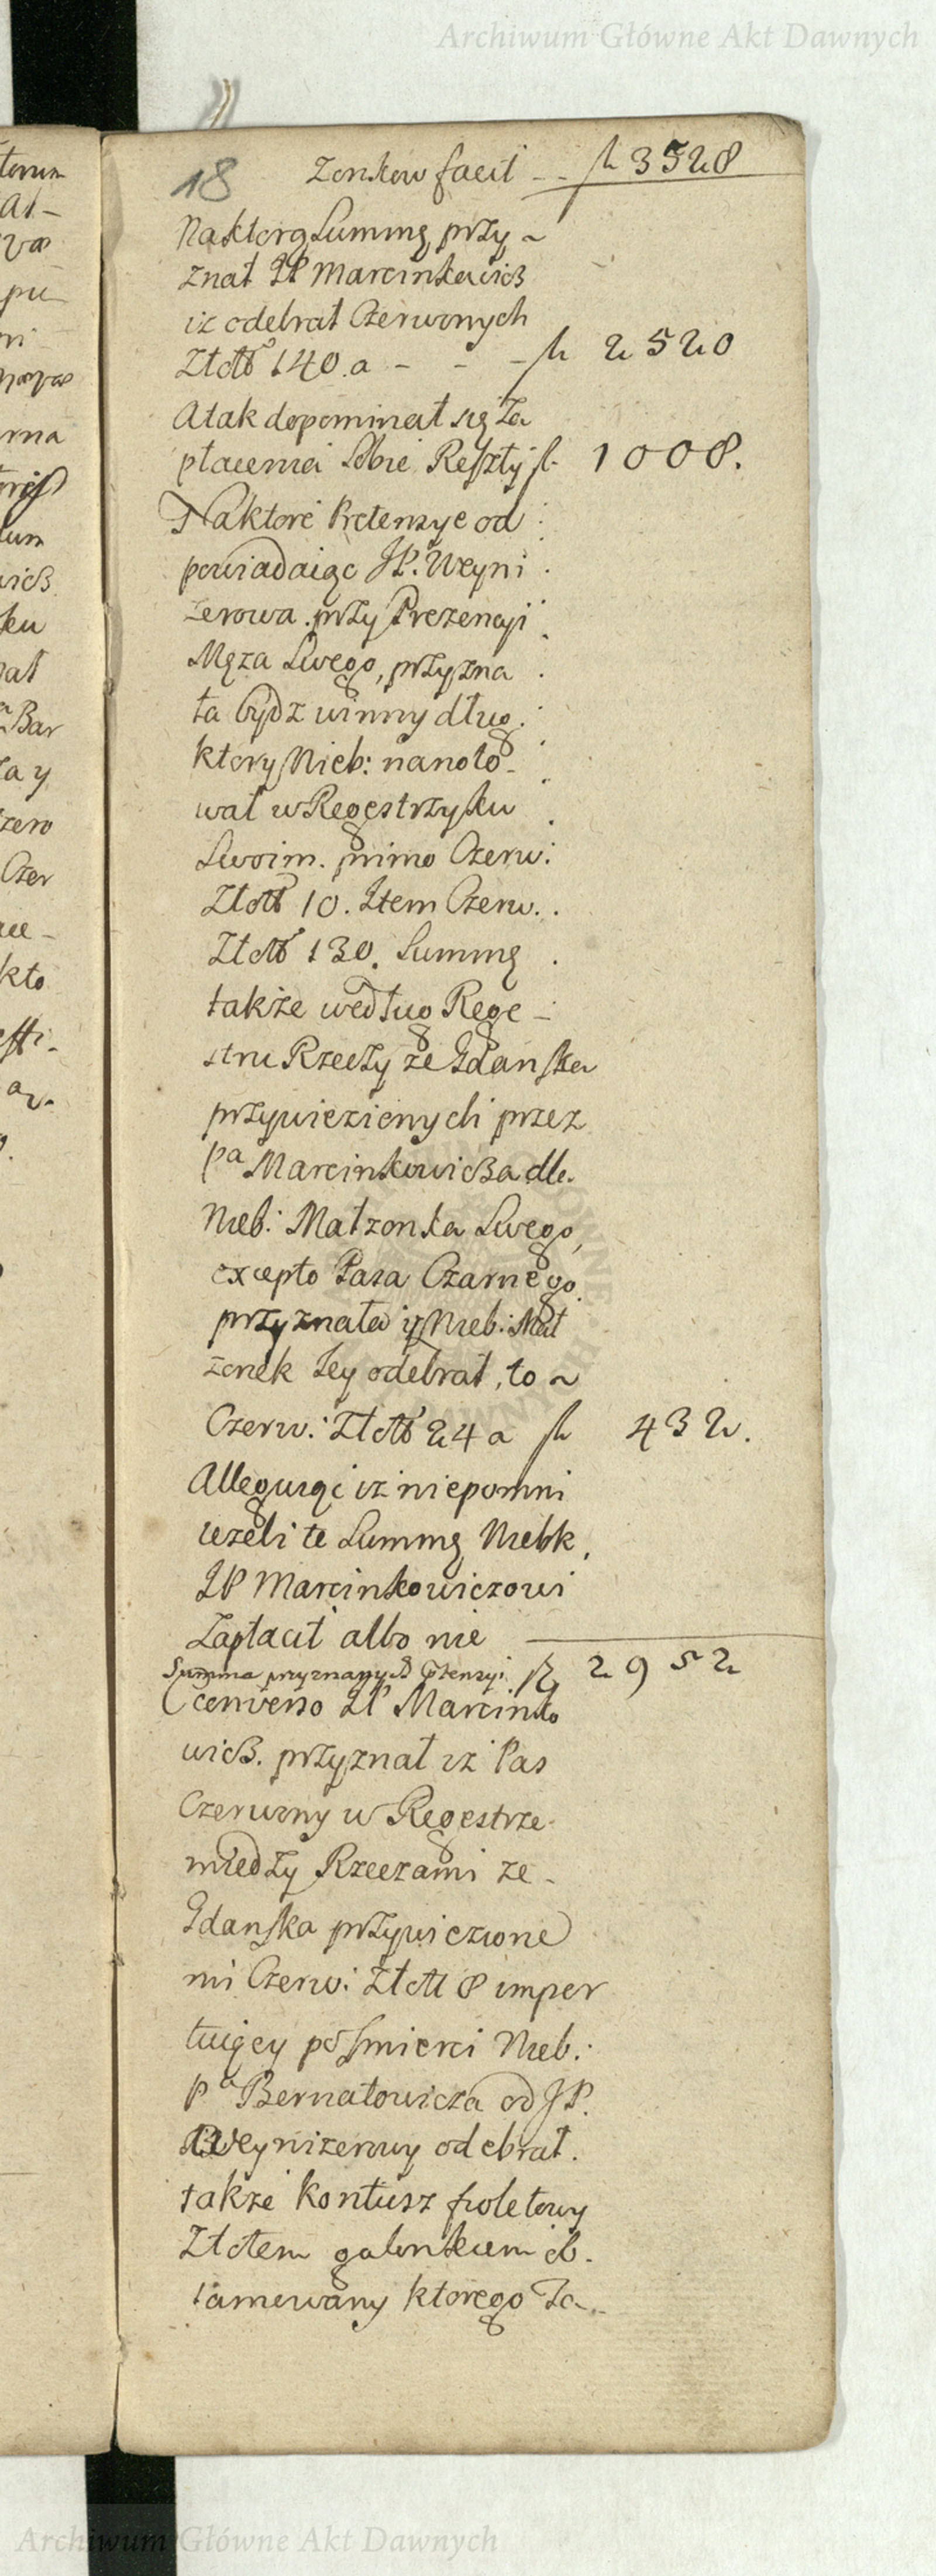 Archiwum Główne Akt Dawnych
18 Zonkow facit - - fl 3528
Naktorą Summę przy ~
znał JP Marcinkowicz
iż odebrał Czerwonych
Złott 140. a - - - fl 2520
A tak dopominał się Za
płacenia Sobie Reszty fl. 1008.
Naktore Pretensye od
powiadaiąc JP. Weyni
zerowa. przy Prezencyi
Męza Swego, przyzna
ła bydz winny dług.
ktory Nieb: nanoto-
wał w Regestrzyku
Swoim. primo Czerw:
Złott 10. Item Czerw.
Złott 130. Summę
także według Rege -
stru Rzeczy ze Gdanska
przywiezionych przez
Pa Marcinkowicza dla
Nieb: Małzonka Swego,
excepto Pasa Czarnego
przyznała iż Nieb: Mał
zonek Jey odebrał, to ~
Czerw: Złott 24 a fl 432.
Alleguiąc iż niepomni
ieżeli te Summę Niebk,
JP Marcinkowiczowi
Zapłacił albo nie
Summa przyznanych Pretensyi fl 2952
E converso JP Marcinko
wicz. przyznał iż Pas
Czerwony w Regestrze
między Rzeczami ze -
Gdanska przywiezione
mi Czerw: Złott 8 impor
tuiący po Smierci Nieb:
Pa Bernatowicza od JP.
Weynizerowy odebrał.
także Kontusz fioletowy
Złotem galonkiem ob.
lamowany ktorego Za-
Archiwum Główne Akt Dawnych